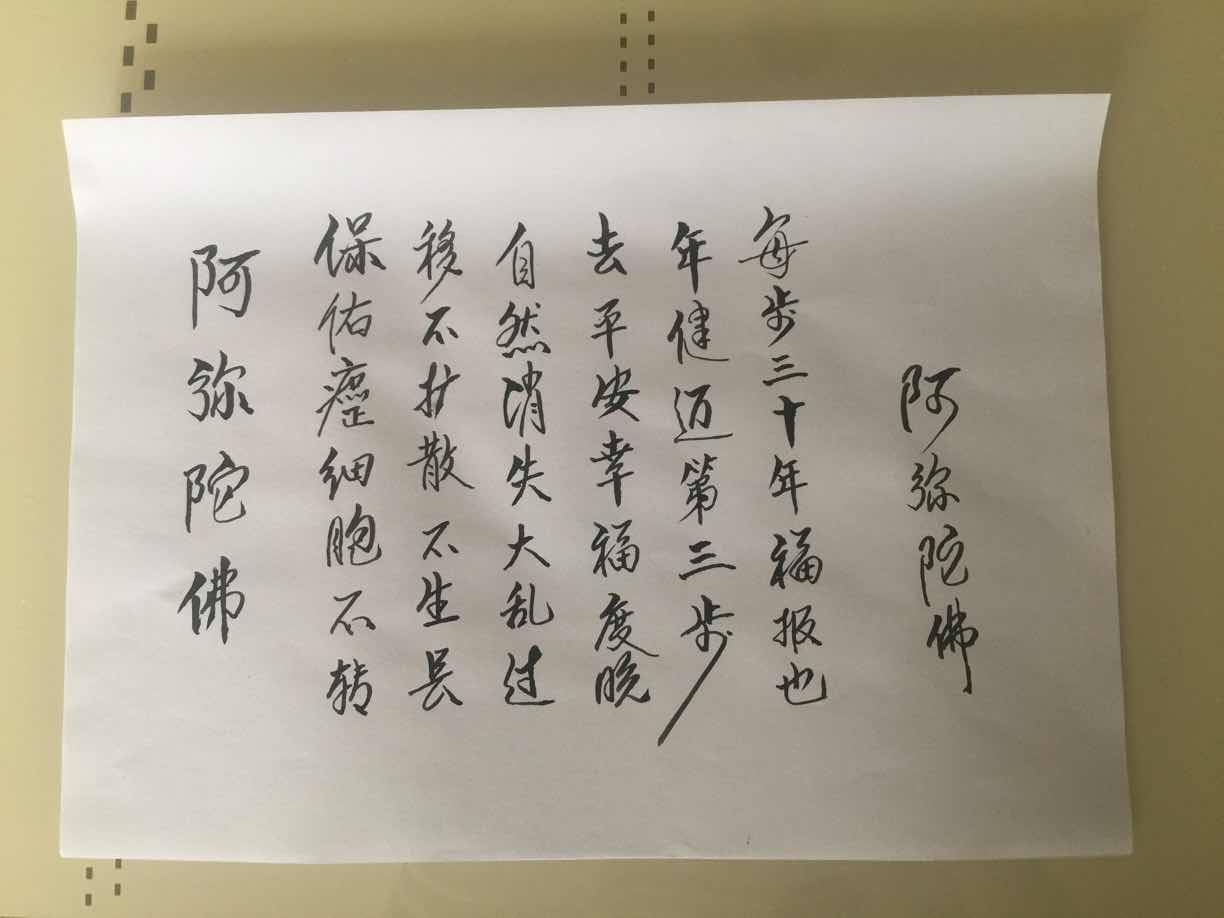 阿弥陀佛
保佑癌细胞不转
移不扩散不生长
自然消失大乱过
去平安幸福度晚
年健迈第三步
每步三十年福报也
阿弥陀佛